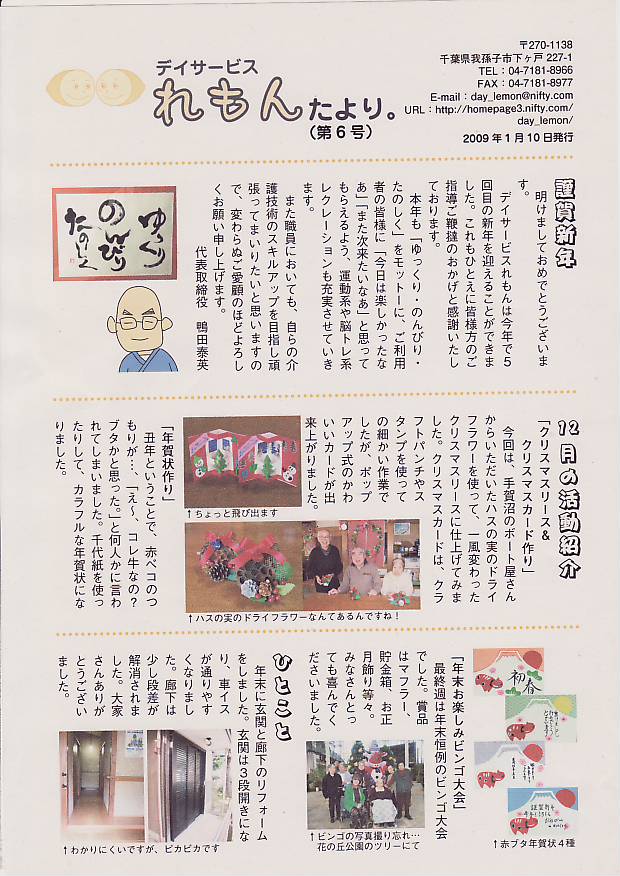 デイサービス
れもんたより。
(第6号)
〒270-1138
千葉県我孫子市下ヶ戸 227-1
TEL:04-7181-8966
FAX:04-7181-8977
E-mail:day_lemon@nifty.com
URL:http://homepage3.nifty.com/
day_lemon/
2009年1月10日発行
謹賀新年
明けましておめでとうございま
す。
デイサービスれもんは今年で5
回目の新年を迎えることができま
した。これもひとえに皆様方のご
指導ご鞭撻のおかげと感謝いたし
ております。
本年も「ゆっくり・のんびり・
たのしく」をモットーに、ご利用
者の皆様に「今日は楽しかったな
あ」「また次来たいなあ」と思って
もらえるよう、運動系や脳トレ系
レクレーションも充実させていき
ます。
また職員においても、自らの介
護技術のスキルアップを目指し頑
張ってまいりたいと思いますの
で、変わらぬご愛顧のほどよろし
くお願い申し上げます。
代表取締役 鴨田泰英
ゆっくり
のんびり
たのしく
12月の活動紹介
「クリスマスリース&
クリスマスカード作り」
今回は、手賀沼のボート屋さん
からいただいたハスの実のドライ
フラワーを使って、一風変わった
クリスマスリースに仕上げてみま
した。クリスマスカードは、クラ
フトパンチやス
タンプを使って
の細かい作業で
したが、ポップ
アップ式のかわ
いいカードが出
来上がりました。
↑ちょっと飛び出ます
↑ハスの実のドライフラワーなんてあるんですね!
「年賀状作り」
丑年ということで、赤ベコのつ
もりが…、「え〜、コレ牛なの?
ブタかと思った。」と何人かに言わ
れてしまいました。千代紙を使っ
たりして、カラフルな年賀状にな
りました。
初春
謹賀新年
↑赤ブタ年賀状4種
「年末お楽しみビンゴ大会」
最終週は年末恒例のビンゴ大会
でした。賞品
はマフラー、
貯金箱、お正
月飾り等々。
みなさんとっ
ても喜んでく
ださいました。
↑ビンゴの写真撮り忘れ…
花の丘公園のツリーにて
ひとこと
年末に玄関と廊下のリフォーム
をしました。玄関は3段開きにな
り、車イス
が通りやす
くなりまし
た。廊下は
少し段差が
解消されま
した。大家
さんありが
とうござい
ました。
↑わかりにくいですが、ピカピカです